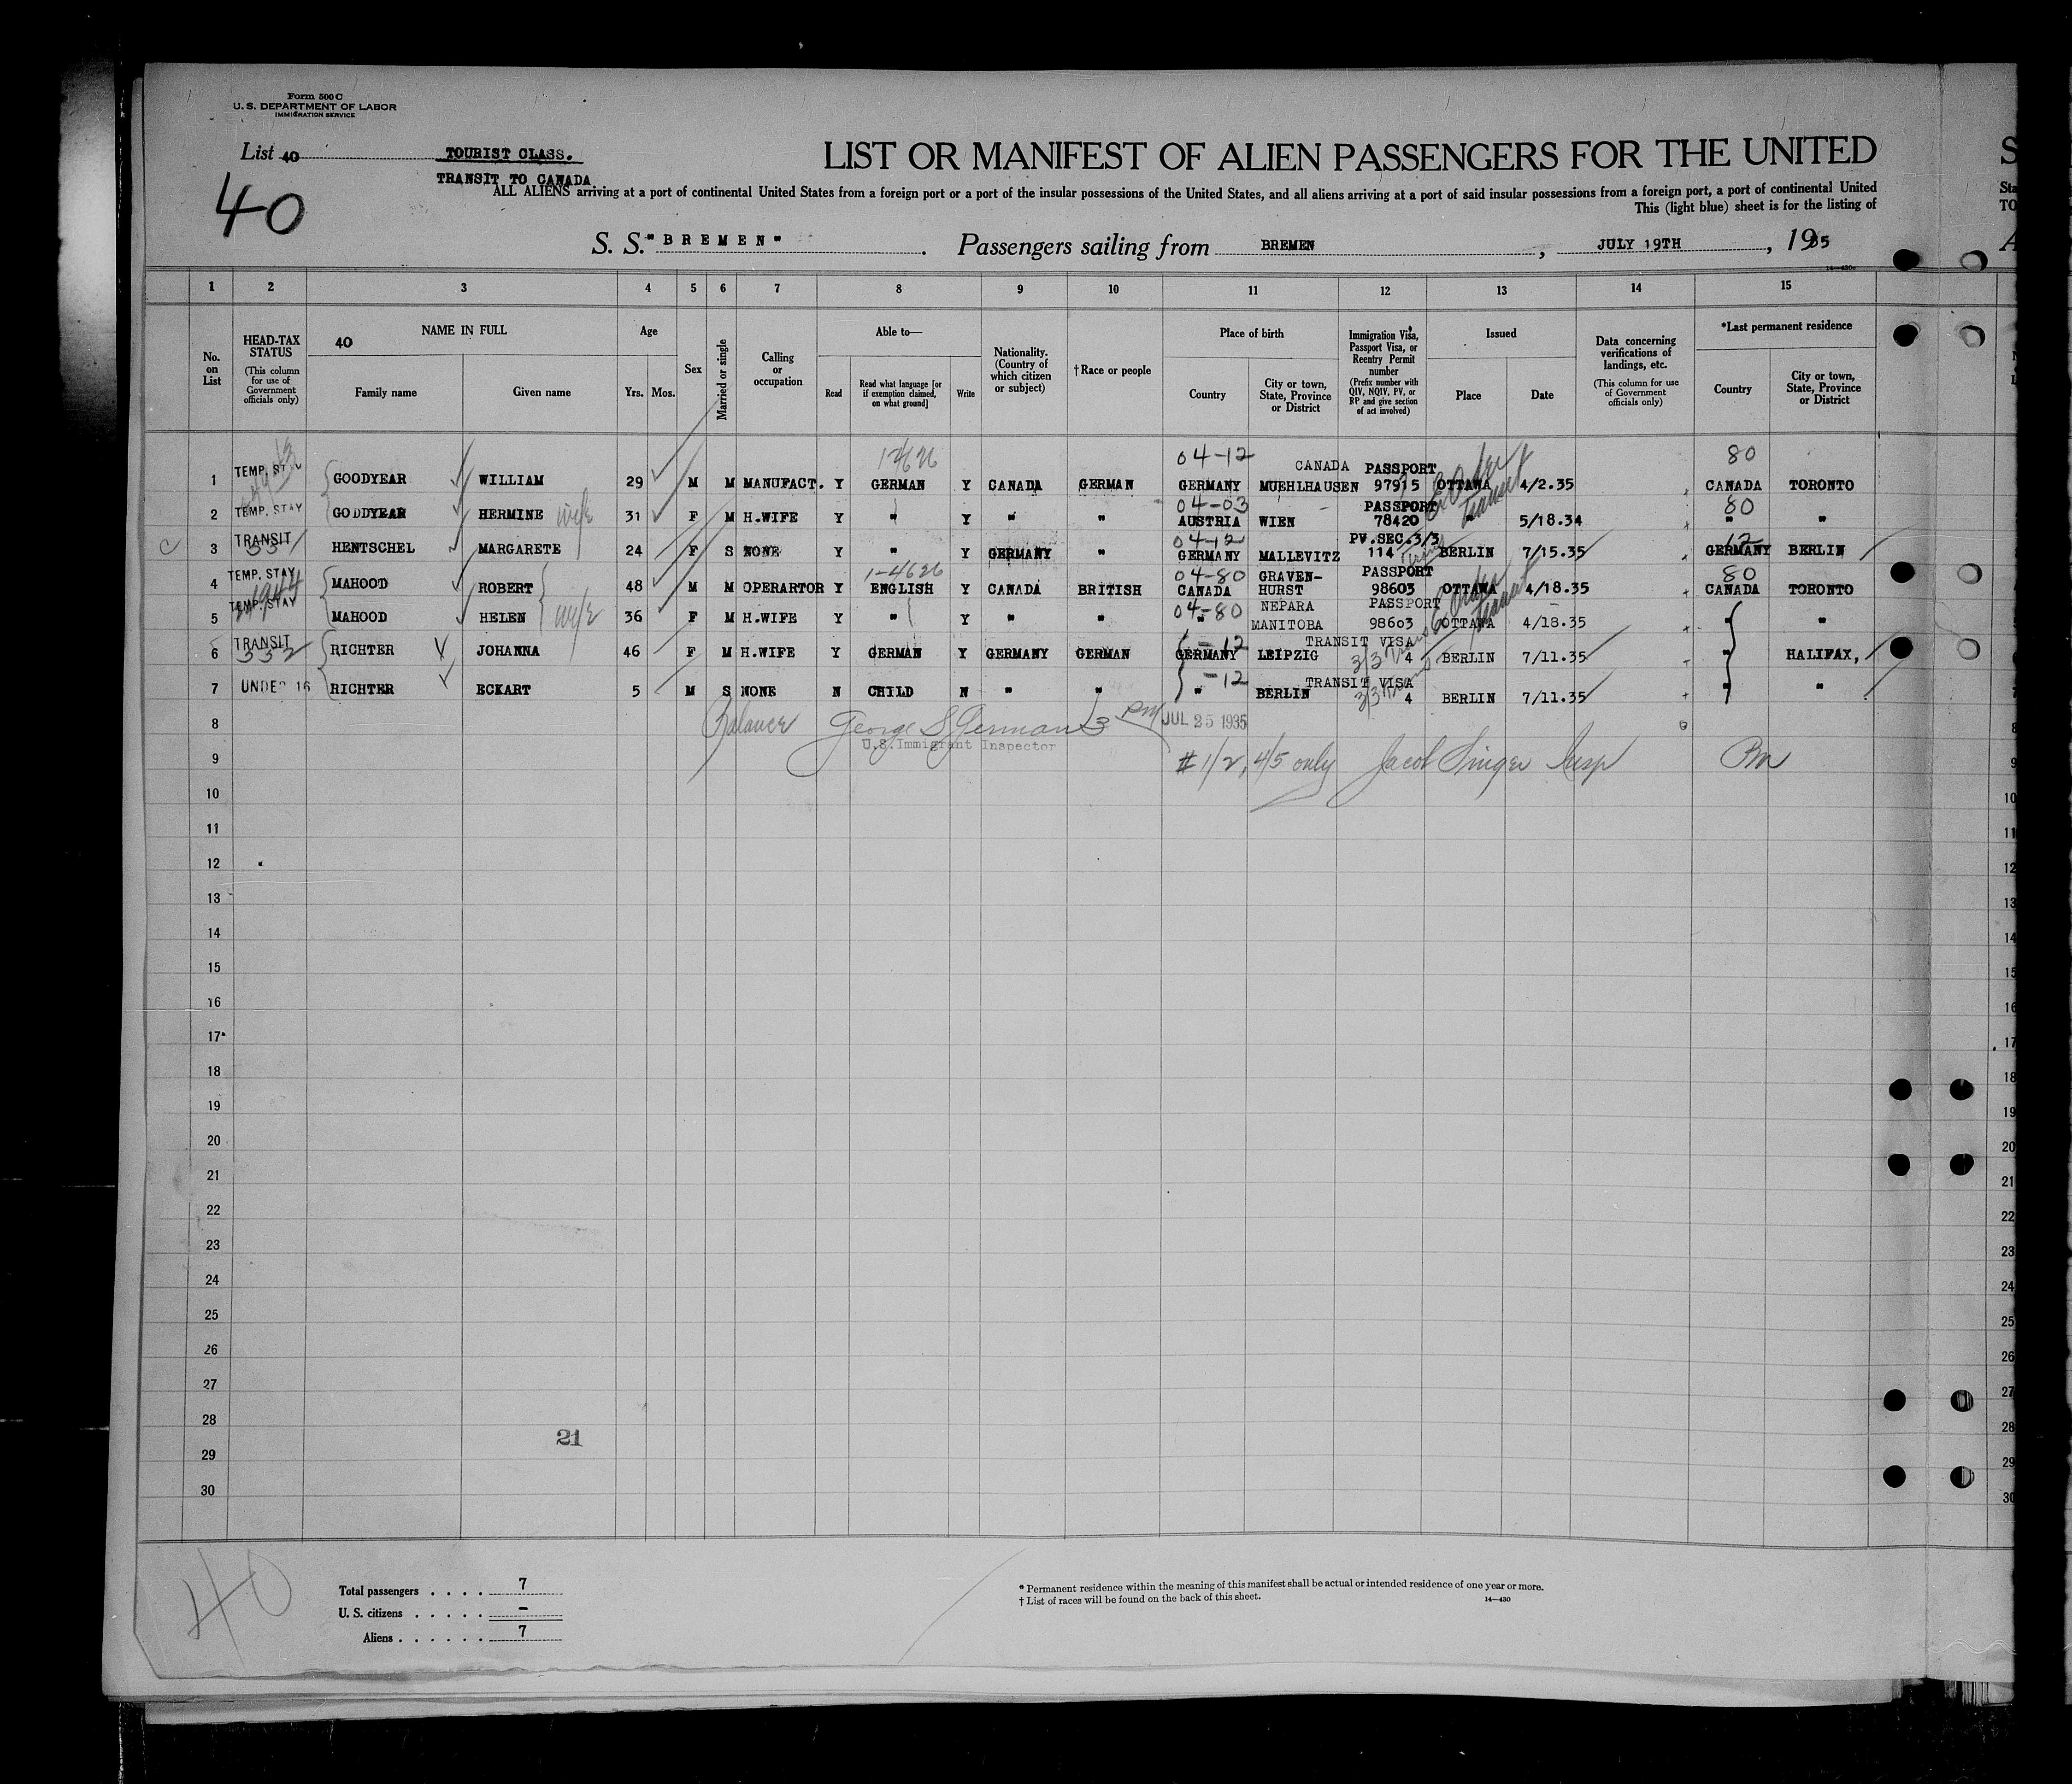 Form 500 C
U. S. DEPARTMENT OF LABOR
IMMIGRATION SERVICE
List 40
TOURIST CLASS.
TRANSIT TO CANADA
40
LIST OR MANIFEST OF ALIEN PASSENGERS FOR THE UNITED
ALL ALIENS arriving at a port of continental United States from a foreign port or a port of the insular possessions of the United States, and all aliens arriving at a port of said insular possessions from a foreign port, a port of continental United
This (light blue) sheet is for the listing of
S. S. "BREMEN" . Passengers sailing from BREMEN , JULY 19TH , 1935
14—430c
1 2 3 4 5 6 7 8 9 10 11 12 13 14 15
No. on List
HEAD-TAX STATUS
(This column for use of Government officials only)
40 NAME IN FULL
Family name Given name
Age
Yrs. Mos.
Sex
Married or single
Calling or occupation
Able to—
Read Read what language [or if exemption claimed, on what ground] Write
Nationality. (Country of which citizen or subject)
†Race or people
Place of birth
Country City or town, State, Province or District
Immigration Visa, Passport Visa, or Reentry Permit number
(Prefix number with QIV, NQIV, PV, or RP and give section of act involved)
Issued
Place Date
Data concerning verifications of landings, etc.
(This column for use of Government officials only)
*Last permanent residence
Country City or town, State, Province or District
04-12 80
1 TEMP. STAY GOODYEAR WILLIAM 29 M M MANUFACT. Y GERMAN Y CANADA GERMAN GERMANY MUEHLHAUSEN CANADA PASSPORT 97915 OTTAWA 4/2.35 CANADA TORONTO
04-03 80
2 TEMP. STAY GODDYEAR HERMINE wife 31 F M H.WIFE Y " Y " " AUSTRIA WIEN PASSPORT 78420 5/18.34 " "
04-12 12
3 TRANSIT HENTSCHEL MARGARETE 24 F S NONE Y " Y GERMANY " GERMANY MALLEVITZ PV.SEC.3/3 114 BERLIN 7/15.35 GERMANY BERLIN
1-4626 04-80 80
4 TEMP. STAY MAHOOD ROBERT 48 M M OPERARTOR Y ENGLISH Y CANADA BRITISH CANADA GRAVEN-HURST PASSPORT 98603 OTTAWA 4/18.35 CANADA TORONTO
04-80
5 TEMP. STAY MAHOOD HELEN wife 36 F M H.WIFE Y " Y " " " NEPARA MANITOBA PASSPORT 98603 OTTAWA 4/18.35 " "
-12
6 TRANSIT 332 RICHTER JOHANNA 46 F M H.WIFE Y GERMAN Y GERMANY GERMAN GERMANY LEIPZIG TRANSIT VISA 3/3 4 BERLIN 7/11.35 " HALIFAX,
-12
7 UNDER 16 RICHTER ECKART 5 M S NONE N CHILD N " " " BERLIN TRANSIT VISA 3/3 4 BERLIN 7/11.35 " "
8 Balance George S German 3 PM JUL 25 1935
U.S. Immigrant Inspector
9 # 1/2, 4/5 only Jacob Singer Insp
10
11
12
13
14
15
16
17
18
19
20
21
22
23
24
25
26
27
28
21
29
30
40
Total passengers . . . . 7
U. S. citizens . . . . . -
Aliens . . . . . . 7
* Permanent residence within the meaning of this manifest shall be actual or intended residence of one year or more.
† List of races will be found on the back of this sheet.
14—430